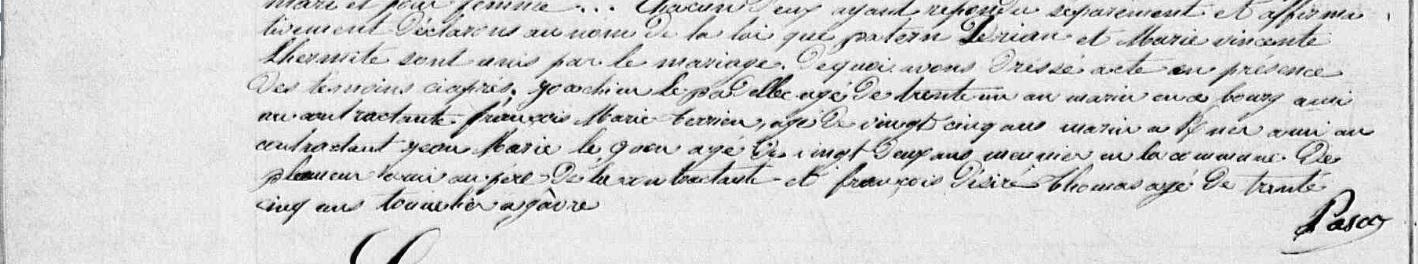 mari et pour femme... Chacun d'eux ayant repondu separement et affirma
tivement déclarons au nom de la loi que patern Lerian et Marie vincente
Lhermite sont unis par le mariage. de quoi avons dressé acte en présence
des témoins ciaprés. joachim Le padellec agé de trente un an marin au bourg ami
au contractante. françois Marie terrien, agé de vingt cinq ans marin a ami au
contractant jean Marie le goen agé de vingt deux ans meunier en la commune de
plœmeur ami au pere de la contractante et françois désiré thomas agé de trente
cinq ans tonnelier a gâvre
Pasco